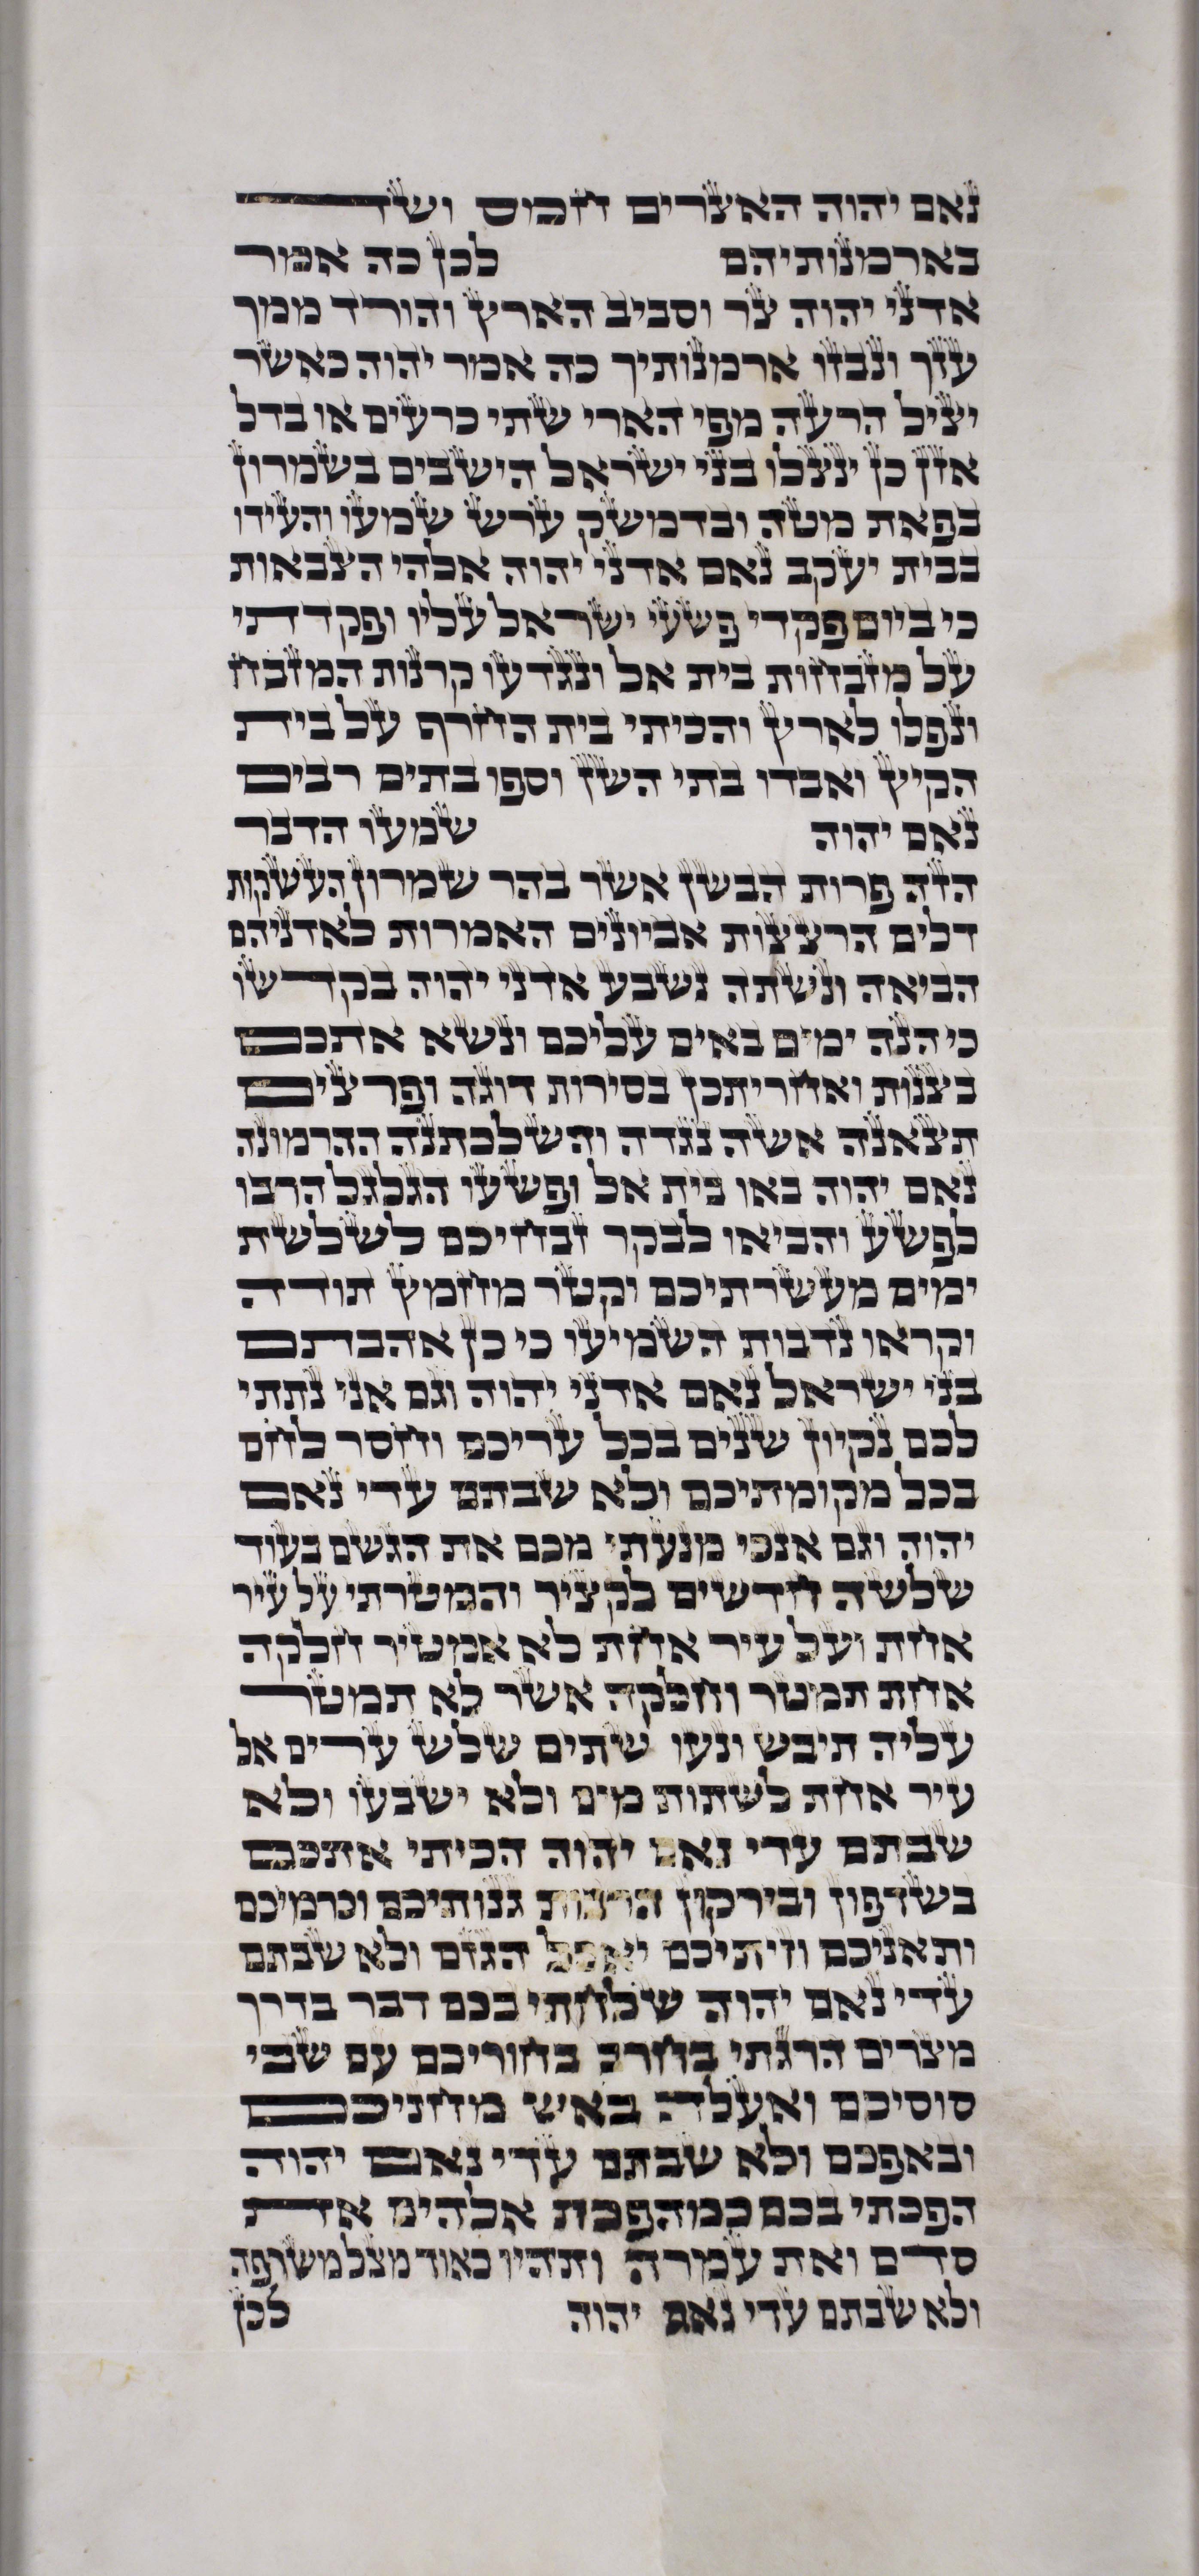 נאם יהוה האצרים חמס ושד
בארמנותיהם לכן כה אמר
אדני יהוה צר וסביב הארץ והורד ממך
עזך ונבזו ארמנותיך כה אמר יהוה כאשר
יציל הרעה מפי הארי שתי כרעים או בדל
אזן כן ינצלו בני ישראל הישבים בשמרון
בפאת מטה ובדמשק ערש שמעו והעידו
בבית יעקב נאם אדני יהוה אלהי הצבאות
כי ביום פקדי פשעי ישראל עליו ופקדתי
על מזבחות בית אל ונגדעו קרנות המזבח
ונפלו לארץ והכיתי בית החרף על בית
הקיץ ואבדו בתי השן וספו בתים רבים
נאם יהוה שמעו הדבר
הזה פרות הבשן אשר בהר שמרון העשקות
דלים הרצצות אביונים האמרות לאדניהם
הביאה ונשתה נשבע אדני יהוה בקדשו
כי הנה ימים באים עליכם ונשא אתכם
בצנות ואחריתכן בסירות דוגה ופרצים
תצאנה אשה נגדה והשלכתנה ההרמונה
נאם יהוה באו בית אל ופשעו הגלגל הרבו
לפשע והביאו לבקר זבחיכם לשלשת
ימים מעשרתיכם וקטר מחמץ תודה
וקראו נדבות השמיעו כי כן אהבתם
בני ישראל נאם אדני יהוה וגם אני נתתי
לכם נקיון שנים בכל עריכם וחסר לחם
בכל מקומתיכם ולא שבתם עדי נאם
יהוה וגם אנכי מנעתי מכם את הגשם בעוד
שלשה חדשים לקציר והמטרתי על עיר
אחת ועל עיר אחת לא אמטיר חלקה
אחת תמטר וחלקה אשר לא תמטר
עליה תיבש ונעו שתים שלש ערים אל
עיר אחת לשתות מים ולא ישבעו ולא
שבתם עדי נאם יהוה הכיתי אתכם
בשדפון ובירקון הרבות גנותיכם וכרמיכם
ותאניכם וזיתיכם יאכל הגזם ולא שבתם
עדי נאם יהוה שלחתי בכם דבר בדרך
מצרים הרגתי בחרב בחוריכם עם שבי
סוסיכם ואעלה באש מחניכם
ובאפכם ולא שבתם עדי נאם יהוה
הפכתי בכם כמהפכת אלהים את
סדם ואת עמרה ותהיו כאוד מצל משרפה
ולא שבתם עדי נאם יהוה לכן